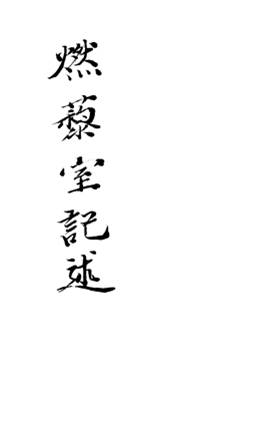 燃藜室記述